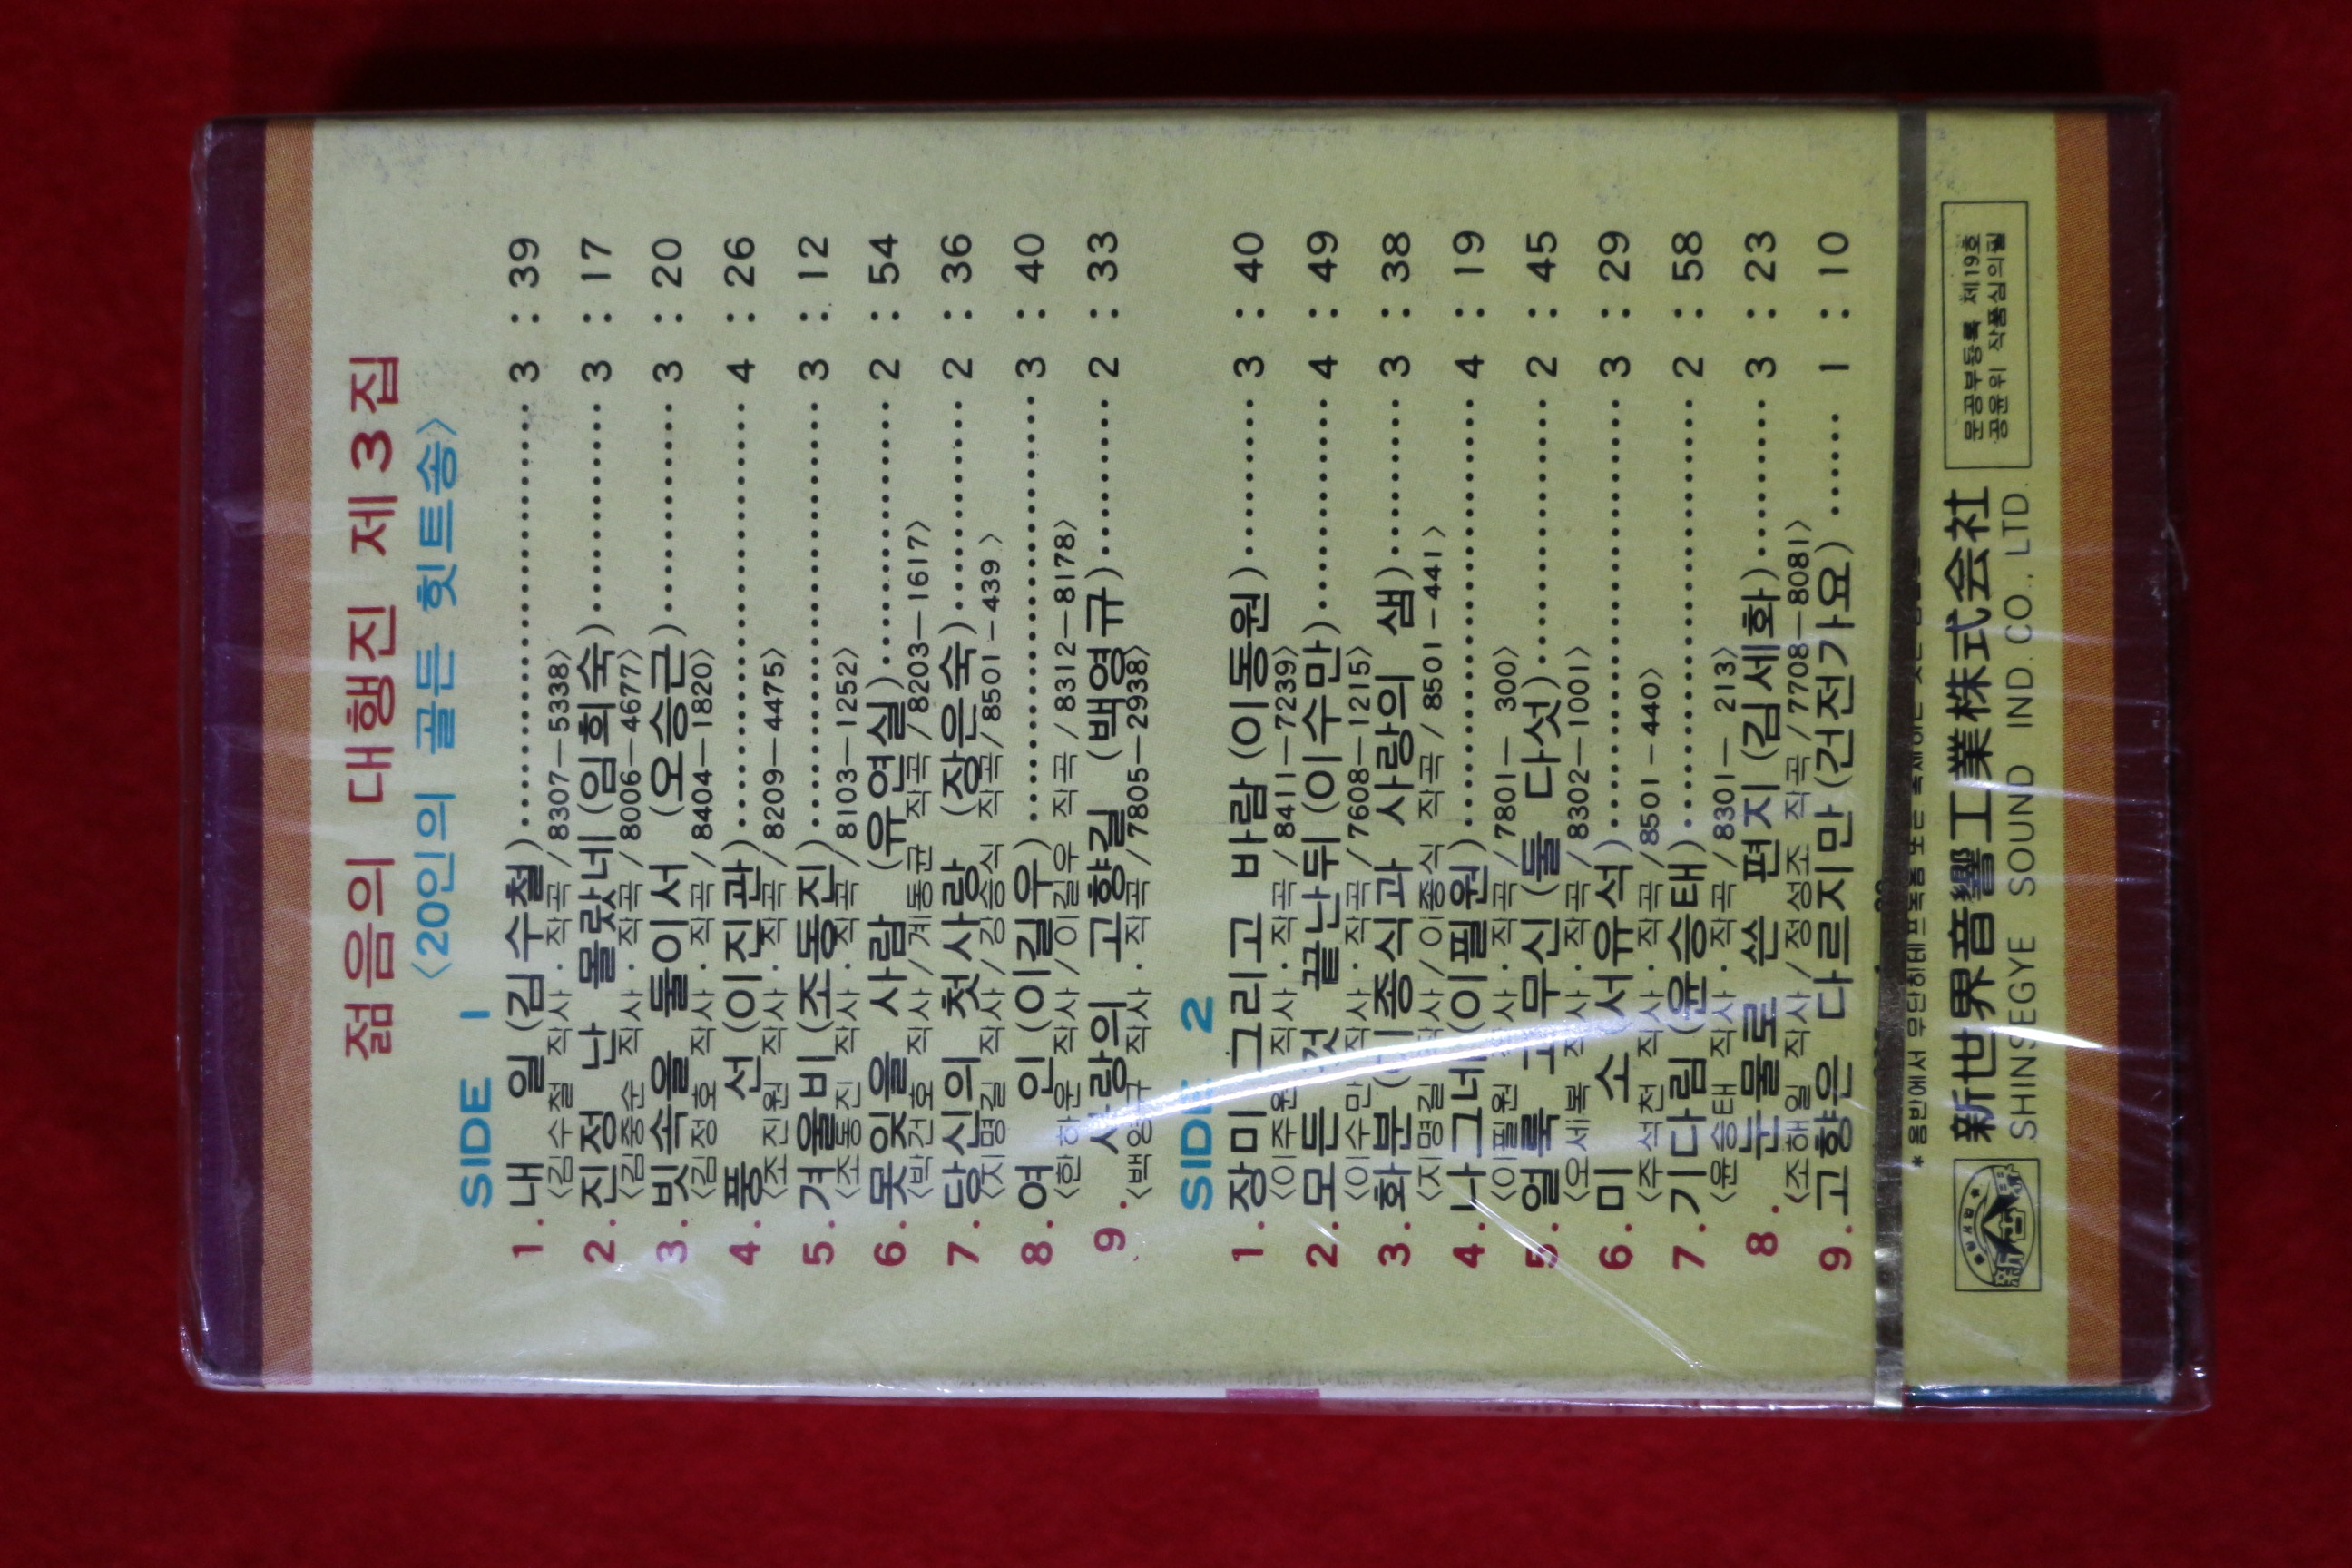 젊음의 대행진 제3집
〈20인의 골든 힛트송〉
SIDE 1
1. 내 일 (김수철) 3 : 39
〈김수철 작사 · 작곡/8307-5338〉
2. 진정 난 몰랐네 (임희숙) 3 : 17
〈김중순 작사 · 작곡/8006-4677〉
3. 빗속을 둘이서 (오승근) 3 : 20
〈김정호 작사 · 작곡/8404-1820〉
4. 풍 선 (이진관) 4 : 26
〈조진원 작사 · 작곡/8209-4475〉
5. 겨울비 (조동진) 3 : 12
〈조동진 작사 · 작곡/8103-1252〉
6. 못잊을 사람 (유연실) 2 : 54
〈박건호 작사/계동균 작곡/8203-1617〉
7. 당신의 첫사랑 (장은숙) 2 : 36
〈지명길 작사/김승식 작곡/8501-439〉
8. 여 인 (이길우) 3 : 40
〈한하운 작사/이길우 작곡/8312-8178〉
9. 사랑의 고향길 (백영규) 2 : 33
〈백영규 작사 · 작곡/7805-2938〉
SIDE 2
1. 장미 그리고 바람 (이동원) 3 : 40
〈이주원 작사 · 작곡/8411-7239〉
2. 모든것 끝난뒤 (이수만) 4 : 49
〈이수만 작사 · 작곡/7608-1215〉
3. 화분 (이종식과 사랑의 샘) 3 : 38
〈지명길 작사/이종식 작곡/8501-441〉
4. 나그네 (이필원) 4 : 19
〈이필원 작사 · 작곡/7801-300〉
5. 얼룩 고무신 (둘 다섯) 2 : 45
〈오세복 작사 · 작곡/8302-1001〉
6. 미 소 (서유석) 3 : 29
〈주석천 작사 · 작곡/8501-440〉
7. 기다림 (윤승태) 2 : 58
〈윤승태 작사 · 작곡/8301-213〉
8. 눈물로 쓴 편지 (김세화) 3 : 23
〈조해일 작사/정성조 작곡/7708-8081〉
9. 고향은 다르지만 (건전가요) 1 : 10
* 음반에서 무단히테프녹음 또는
新世界音響工業株式会社
SHINSEGYE SOUND IND. CO., LTD.
문공부등록 제19호
공윤위 작품심의필